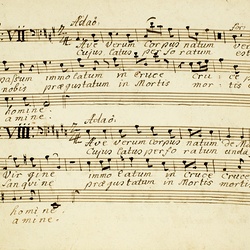 Adaõ.
VII
Ave verum Corpus natum ver
Cujus Latus perforatum est
passum immolatum in Cruce cru : ce p
nobis prægustatum in Mortis mor : tis e
homine.
amine.
Adaõ.
VIII
Ave verum Corpus natum de M
Cujus Latus perforatum unda
Virgine immolatum in Cruce Cruce
Sanguine prægustatum in Mortis mortis
homine.
amine.